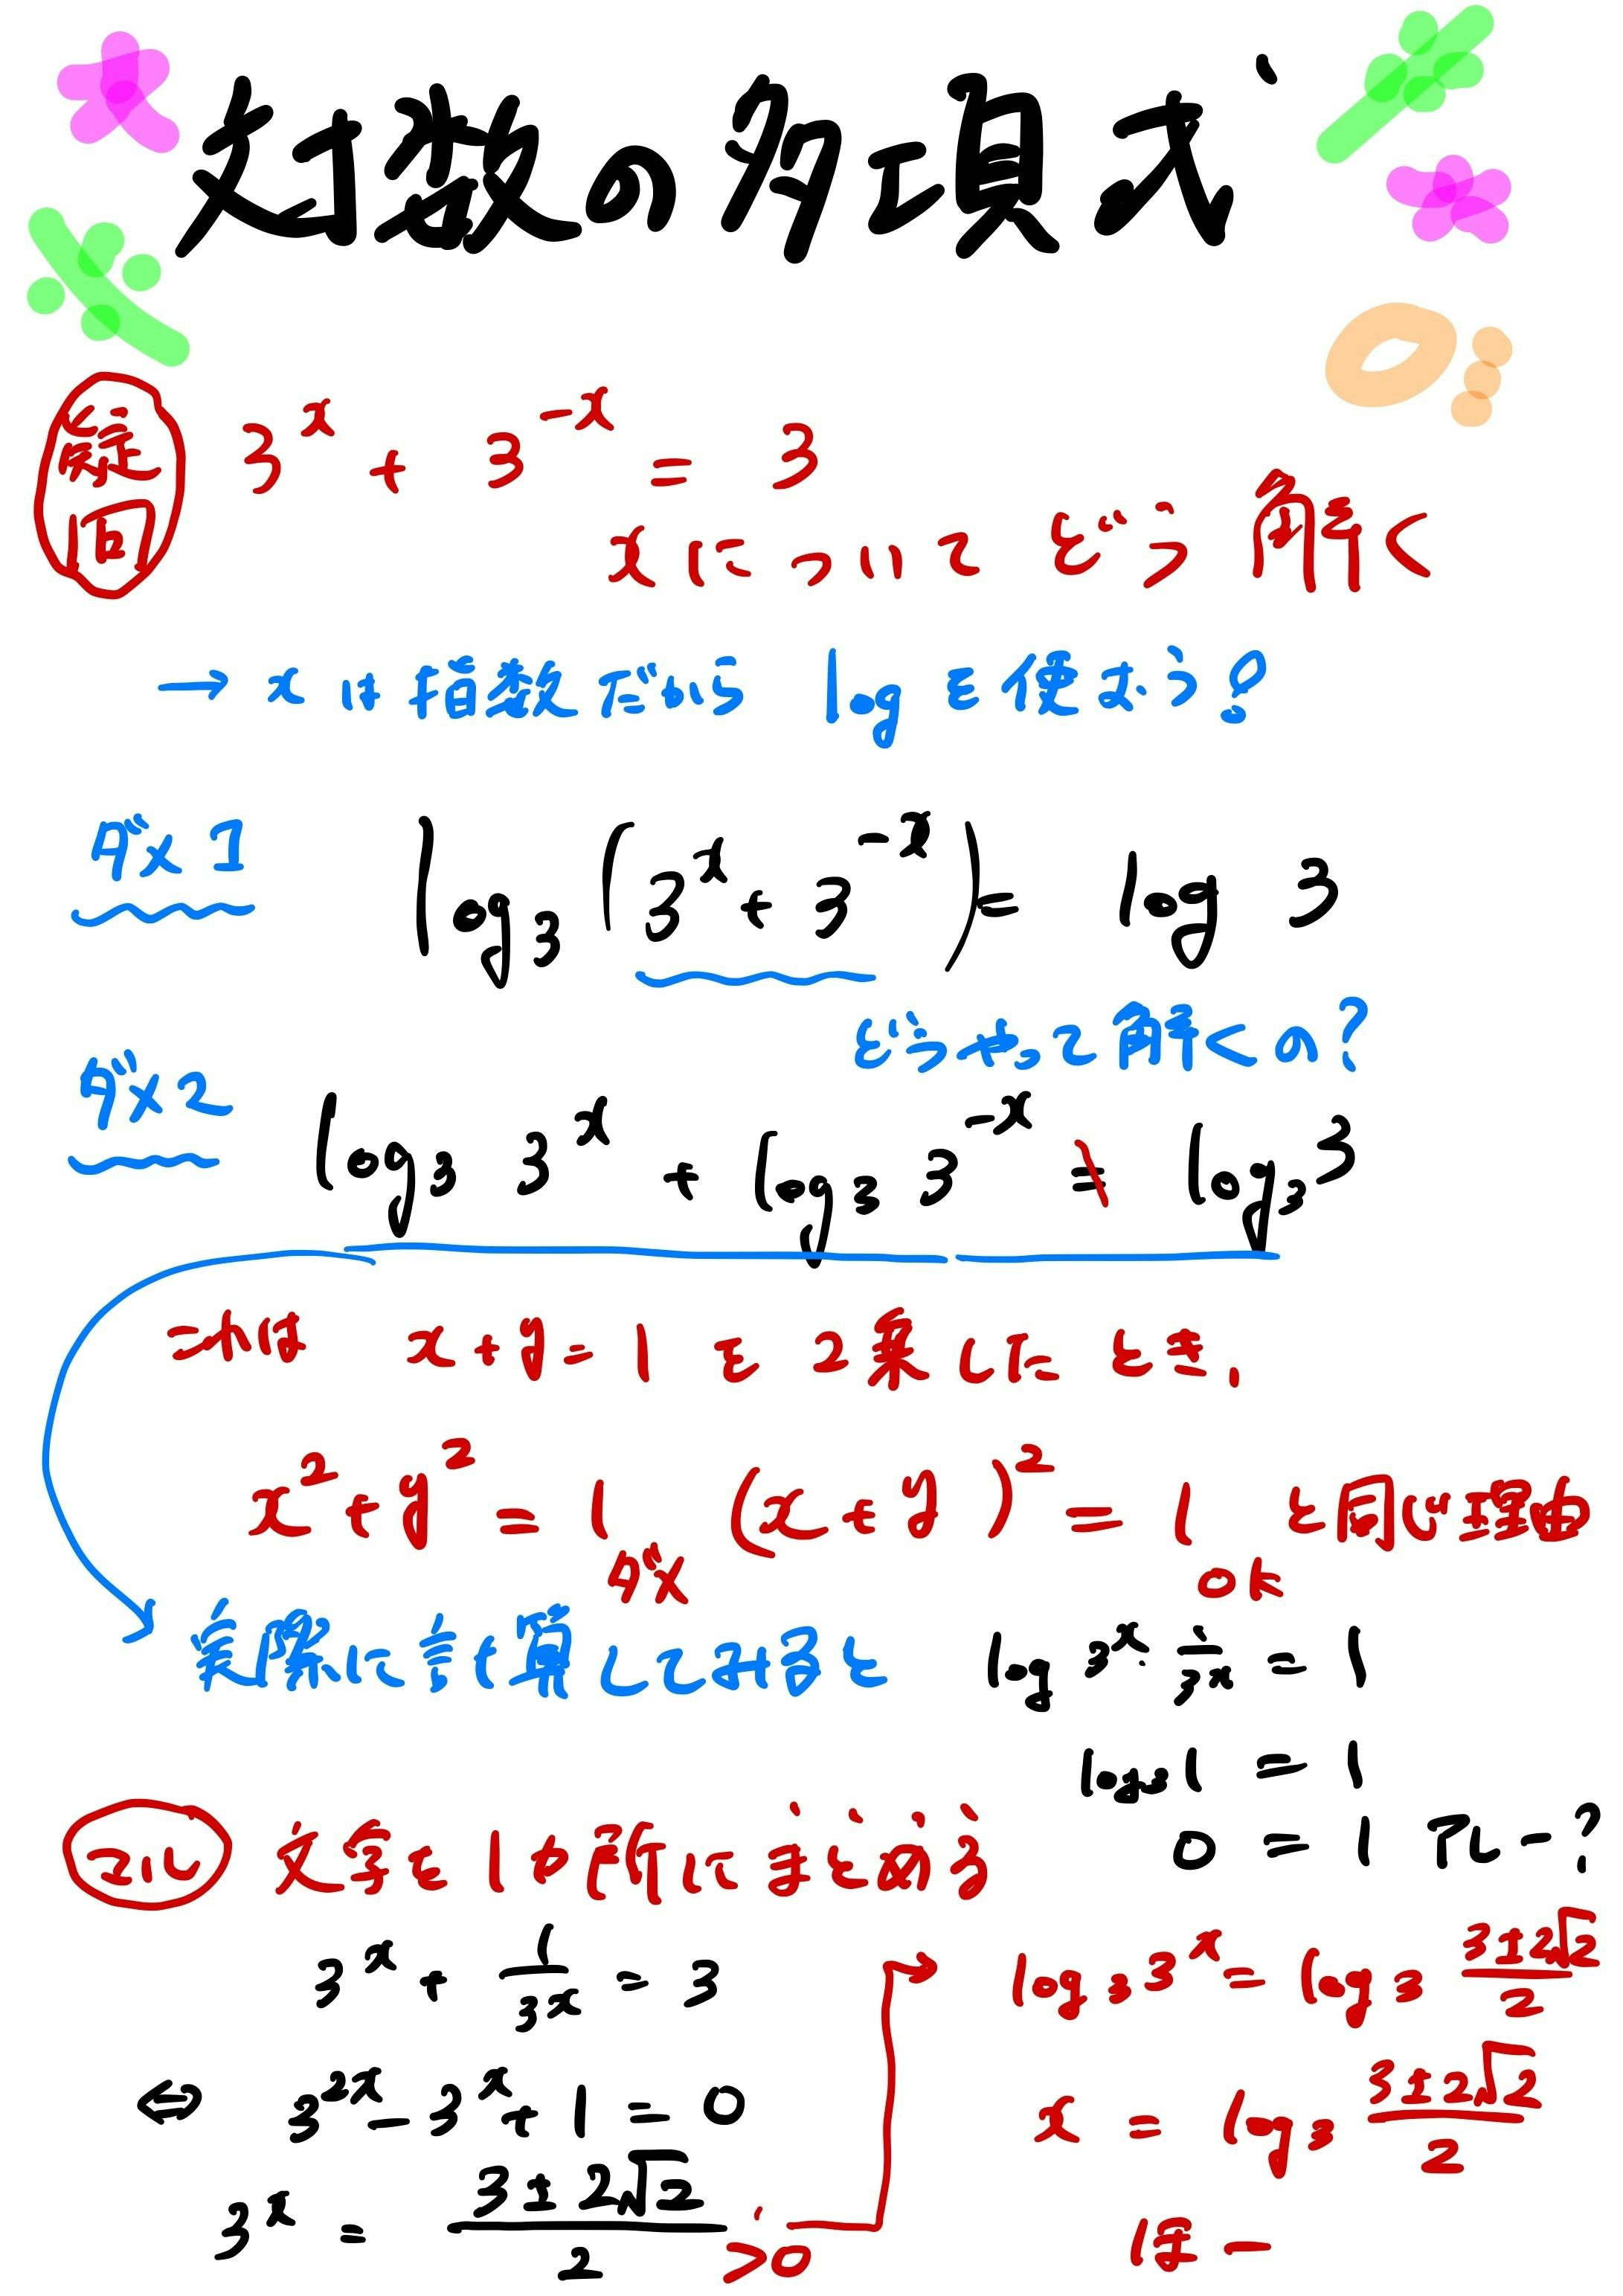 対数の多項式
疑問
3^x + 3^-x = 3
xについてどう解く
→ xは指数だから logを使おう?
ダメ1
log₃(3^x + 3^-x) = log 3
どうやって解くの?
ダメ2
log₃ 3^x + log₃ 3^-x ≠ log₃ 3
これは x+y=1 を 2乗したとき,
x² + y² = 1 ダメ (x+y)² = 1 OK と同じ理由
実際に計算してみると
log 3^x · 1/3^x = 1
log₃ 1 = 1
0 = 1 アレー?
正しく
文字を1か所にまとめる
3^x + 1/3^x = 3
⇔ 3^2x - 3^x + 1 = 0
3^x = (3±2√2)/2 >0
log₃ 3^x = log₃ (3±2√2)/2
x = log₃ (3±2√2)/2
ほー